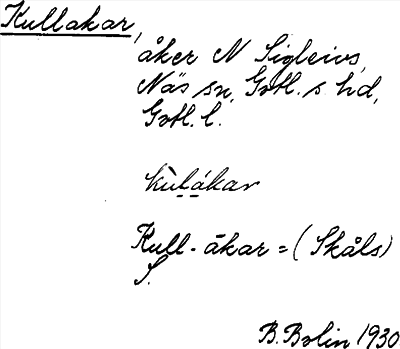 Kullakar,
åker N Sigleivs,
Näs sn, Gotl. s. hd,
Gotl. l.
kùlákar
Kull-åkar = (Skåls)
S.
B. Bolin 1930